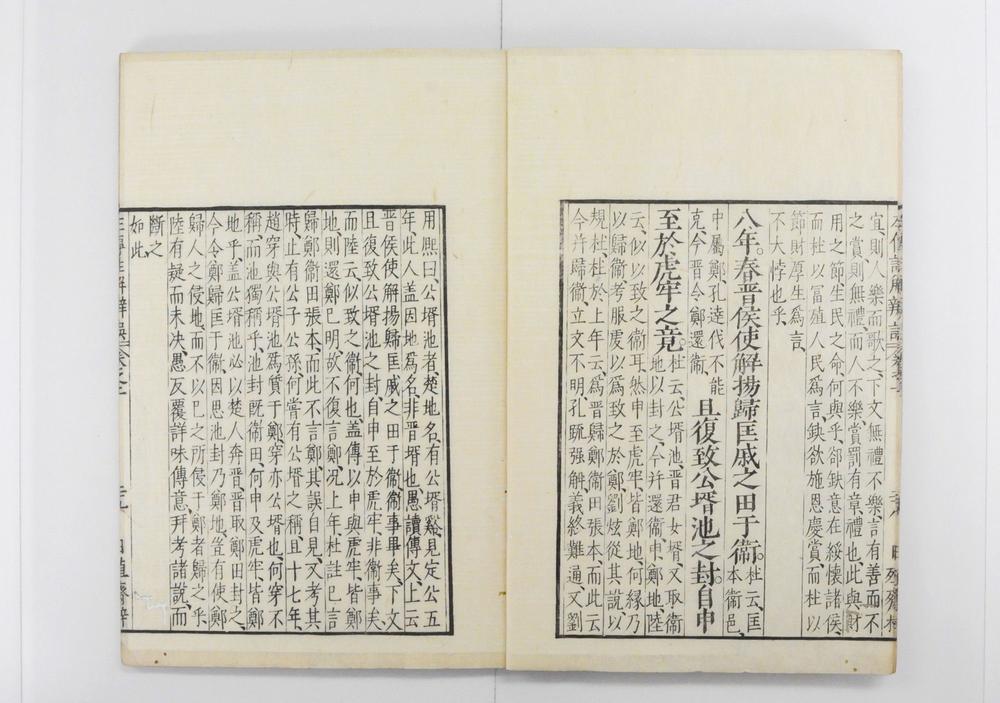 宜則人樂而歌之、下文無禮不樂言有善而不
之賞則無禮、而人不樂、賞罰有章、禮也、此與財
用之節、生民之命、何與乎、卻缺意在綏懷諸侯、
而杜以富殖人民爲言、缺欲施恩慶賞、而杜以
節財厚生爲言、
不大悖也乎、
八年。春晋侯使解揚歸匡戚之田于衞。杜云、匡
本衞邑、
中屬鄭、孔達伐不能
克、今晋令鄭還衞、
且復致公壻池之封。自申
至於虎牢之竟
杜云、公壻池、晋君女壻、又取衞
地以封之、今并還衞、申、鄭地、陸
云、似以致之衞耳、然申至虎牢、皆鄭地、何縁乃
以歸衞、考服虔以爲致之於鄭、劉炫從其說、以
規杜、杜於上年云、爲晋歸鄭衞田張本、而此云
今并歸衞、立文不明、孔䟽强解、義終難通、又劉
用熙曰、公壻池者、楚地名、有公壻谿、見定公五
年、此人盖因地爲名、非晋壻也、愚讀傳文、上云
晋侯使解揚歸匡戚之田于衞、衞事畢矣、下文
且復致公壻池之封、自申至於虎牢、非衞事矣、
而陸云、似致之衞、何也、盖傳以申與虎牢、皆鄭
地、則還鄭已明、故不復言鄭、况上年、杜註已言
歸鄭衞田張本、而此不言鄭、其誤自見、又考其
時、止有公子公孫、何嘗有公壻之稱、且十七年、
趙穿與公壻池爲質于鄭、穿亦公壻也、何穿不
稱、而池獨稱乎、池封既衞田、何申及虎牢、皆鄭
地乎、盖公壻池必以楚人奔晋、晋取鄭田封之、
今令鄭歸匡于衞、因思池封乃鄭地、豈有使鄭
歸人之侵地、而不以已之所侵于鄭者歸之乎、
陸有疑而未决、愚反覆詳味傳意、拜考諸說、而
斷之
如此、